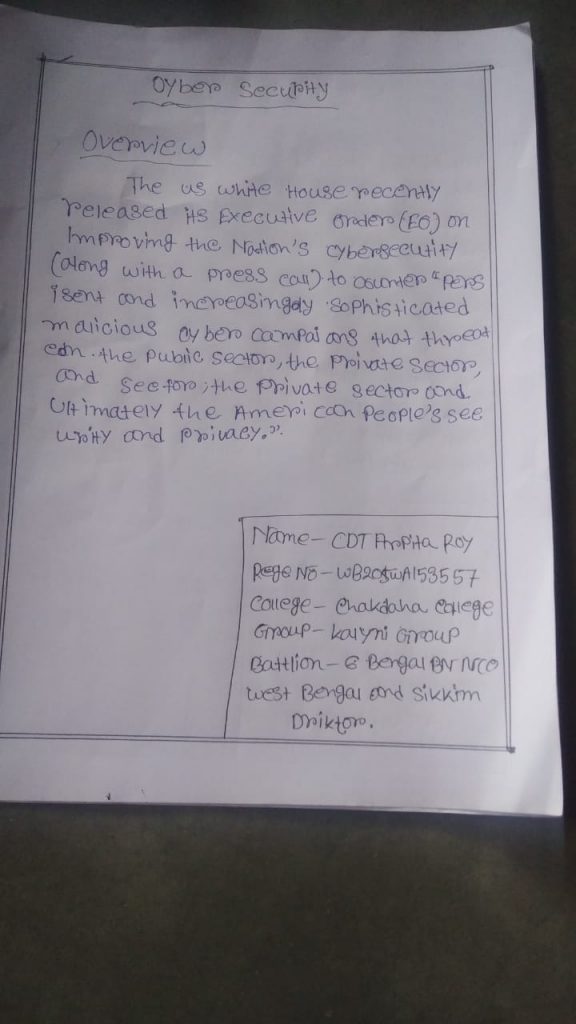 Cyber Security
Overview
The us white House recently
released its Executive order (EO) on
Improving the Nation's cybersecutity
(along with a press call) to counter "pers
isent and increasingdy sophisticated
malicious cyber campai ons that threat
edn. the Public sector, the private sector,
and sector; the private sector and
Ultimately the Ameri can People's see
urity and privacy.".
Name- CDT Arpita Roy
Rege No - WB20SWA153557
College- Chakdaha College
Group- kalyni Group
Battlion - 6 Bengal BN NCC
West Bengal and Sikkim
Driktor.